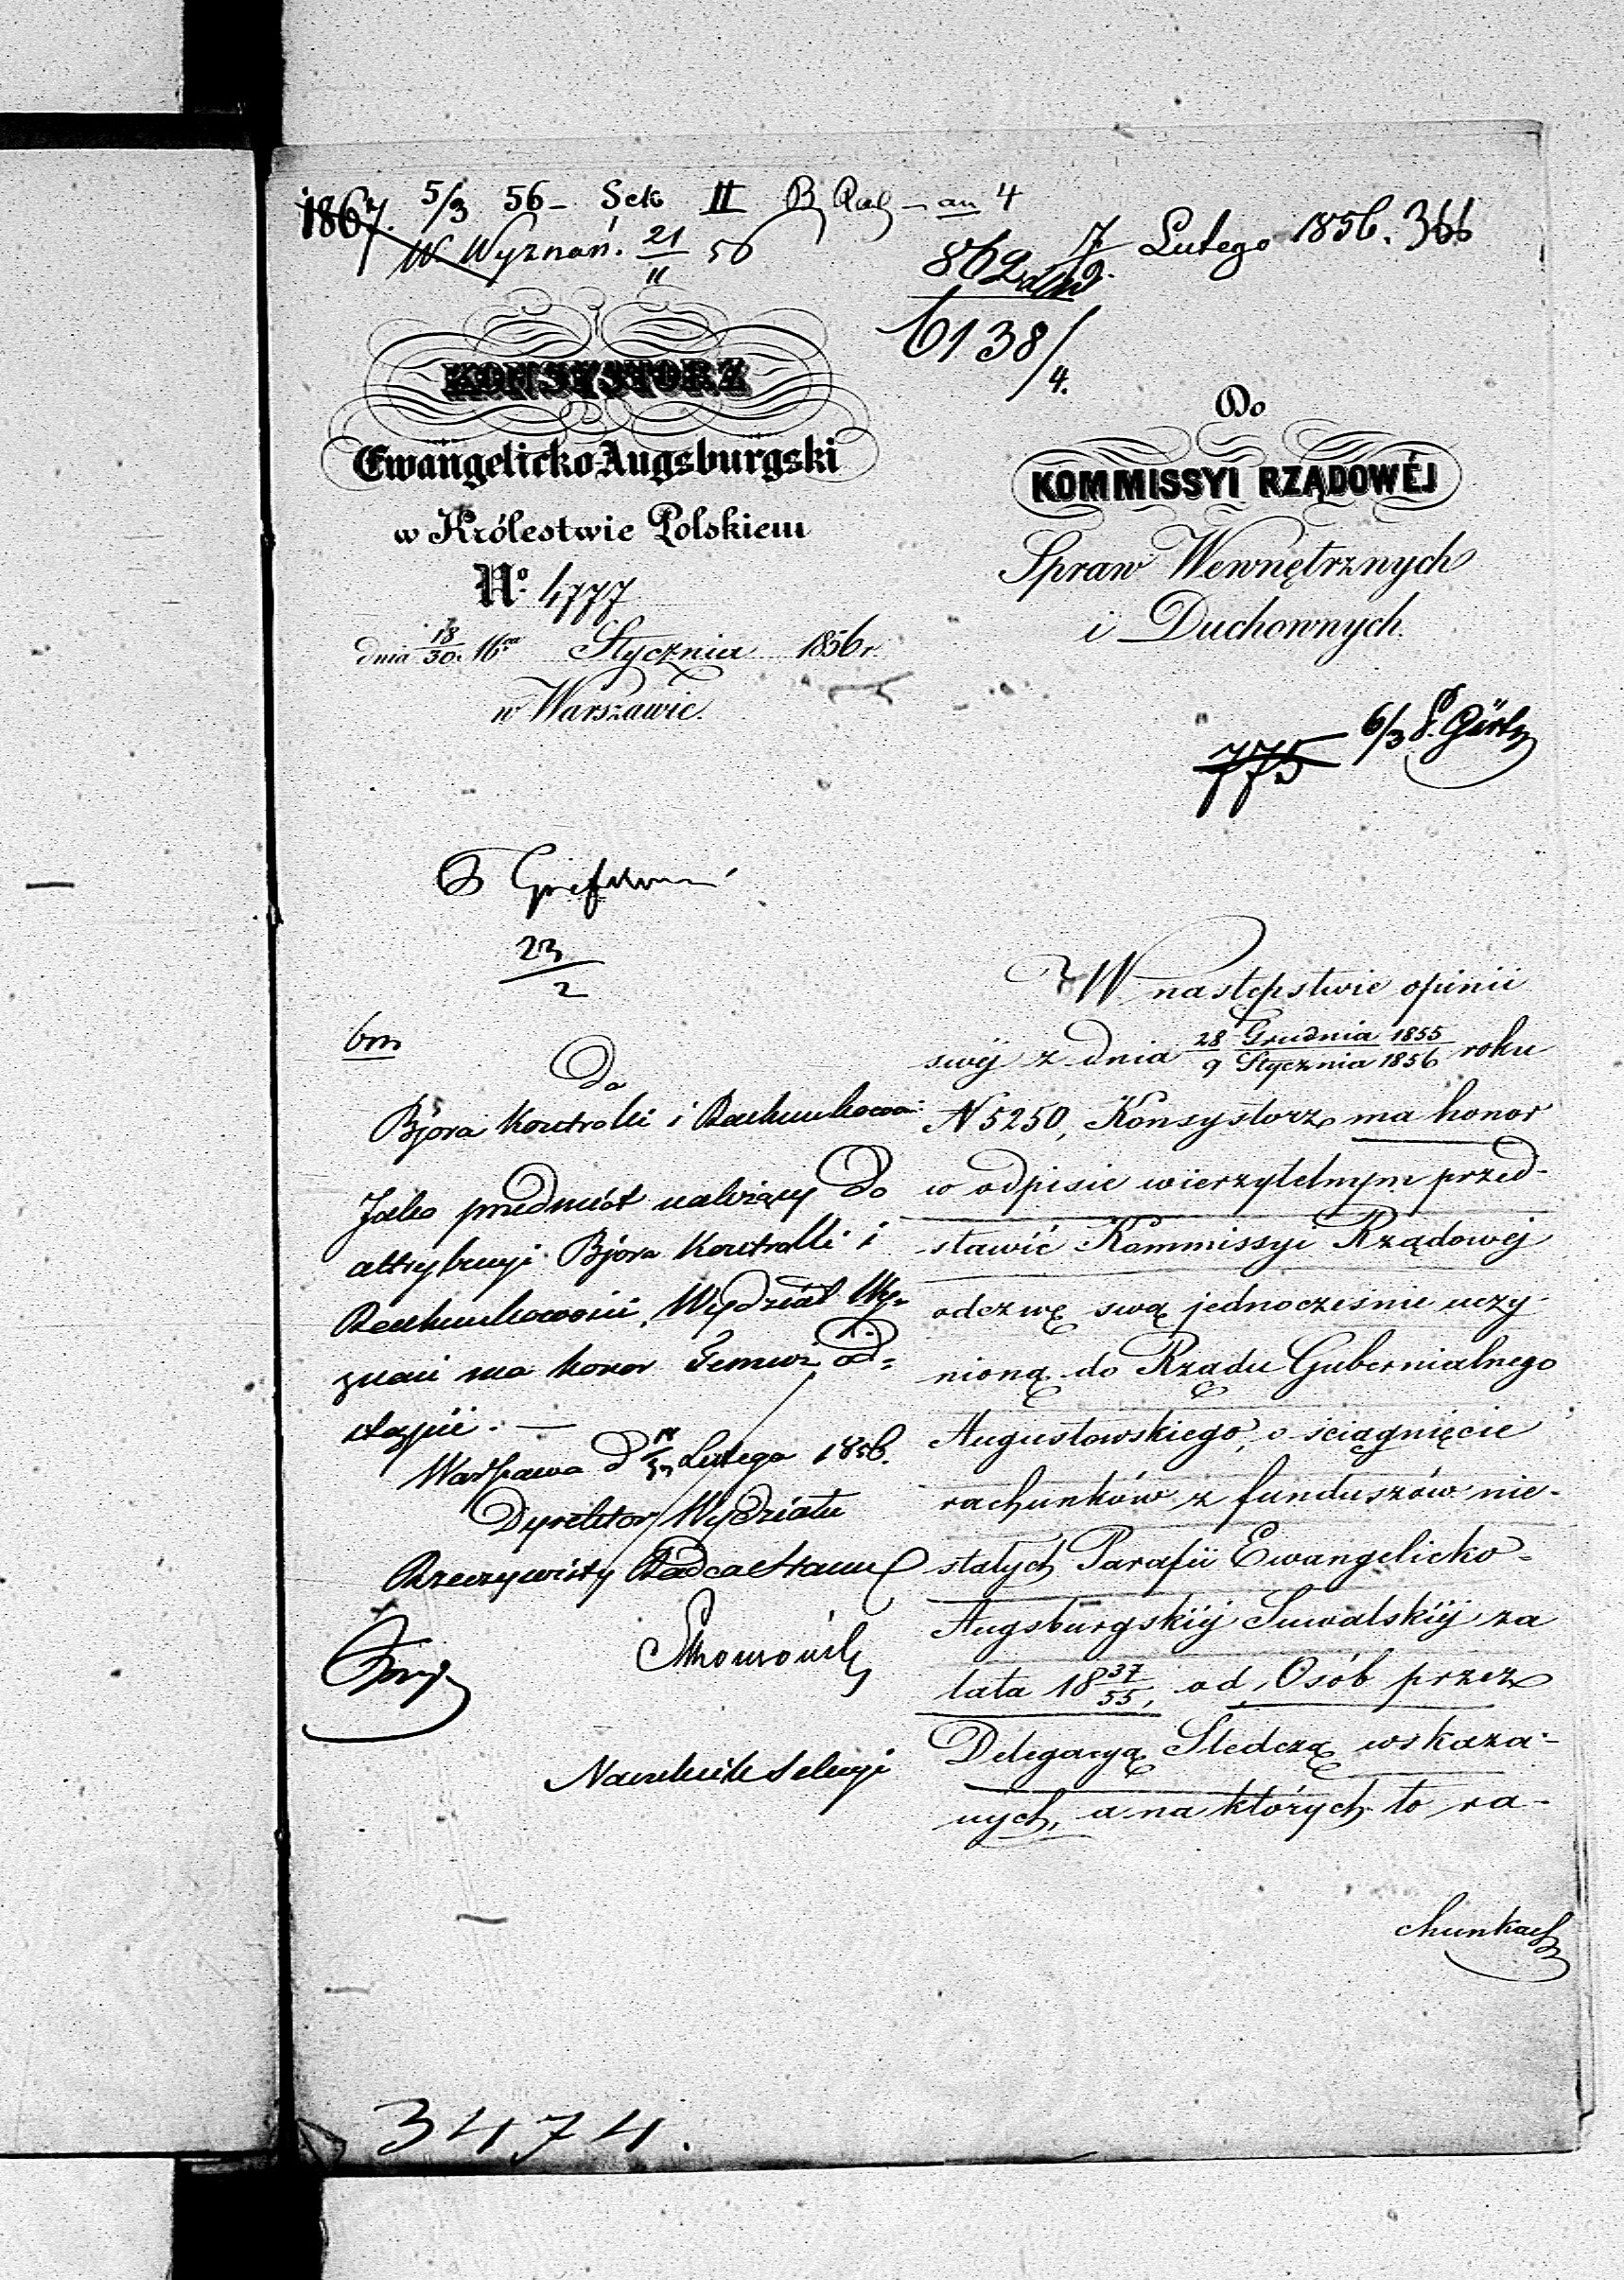 1867. 5/3 56 – Sek II B Rach – an 4
W. Wyznań. 21/II 56
7 Lutego 1856. 366
862
6138/4.
KONSYSTORZ
Ewangelicko Augsburgski
w Królestwie Polskiem
No. 4777
dnia 18/30. 16go Stycznia 1856 r.
w Warszawie.
Do
KOMMISSYI RZĄDOWÉJ
Spraw Wewnętrznych
i Duchownych.
775
6/3
23/2
bm
Do
Bjóra Kontrolli i Rachunkowości
Jako przedmiot należący do
attrybucyi Bjóra Kontrolli i
Rachunkowości, Wydział Wy-
znań ma honor Temuż od-
stąpić. —
Warszawa d Lutego 1856.
Dyrektor Wydziału
Rzeczywisty Radca Stanu
Naczelnik Sekcyi
W następstwie opinii
swéj z dnia 28 Grudnia 1855 / 9 Stycznia 1856 roku
N 5250, Konsystorz ma honor
w odpisie wierzytelnym przed-
stawić Kommissyi Rządowéj
odezwę swą jednocześnie uczy-
nioną do Rządu Gubernialnego
Augustowskiego, o ściągnięcie
rachunków z funduszów nie-
stałych Parafii Ewangelicko-
Augsburgskiéj Suwalskiéj za
lata 18 37/55, od Osób przez
Delegacyą Śledczą wskaza-
nych, a na których to ra-
chunkach
3474.